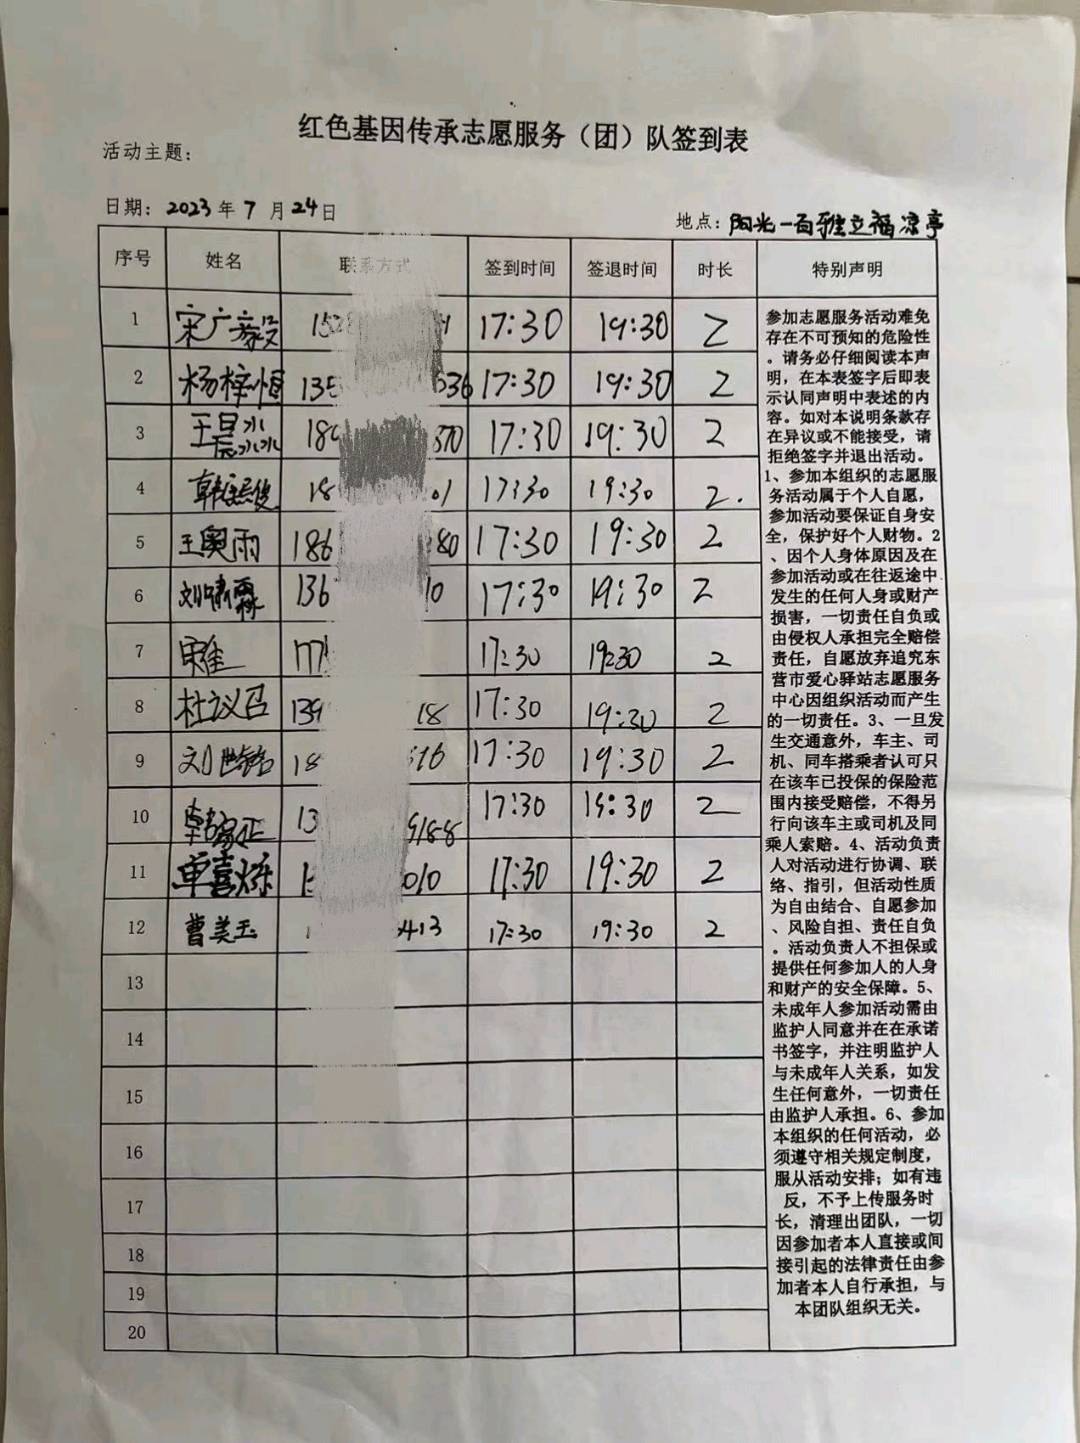 红色基因传承志愿服务（团）队签到表
活动主题：
日期：2023年7月24日
地点：阳光一百雅立福凉亭
序号 姓名 联系方式 签到时间 签退时间 时长 特别声明
1 宋广毅 17:30 19:30 2
2 杨梓恒 135 536 17:30 19:30 2
3 王晨 570 17:30 19:30 2
4 韩 18 01 17:30 19:30 2.
5 王奥雨 186 80 17:30 19:30 2
6 刘啸霖 136 10 17:30 19:30 2
7 17:30 19:30 2
8 杜议召 139 18 17:30 19:30 2
9 刘 18 17:30 19:30 2
10 13 9188 17:30 19:30 2
11 单喜烁 010 17:30 19:30 2
12 曹美玉 413 17:30 19:30 2
13
14
15
16
17
18
19
20
参加志愿服务活动难免
存在不可预知的危险性
。请务必仔细阅读本声
明，在本表签字后即表
示认同声明中表述的内
容。如对本说明条款存
在异议或不能接受，请
拒绝签字并退出活动。
1、参加本组织的志愿服
务活动属于个人自愿，
参加活动要保证自身安
全，保护好个人财物。2
、因个人身体原因及在
参加活动或在往返途中
发生的任何人身或财产
损害，一切责任自负或
由侵权人承担完全赔偿
责任，自愿放弃追究东
营市爱心驿站志愿服务
中心因组织活动而产生
的一切责任。3、一旦发
生交通意外，车主、司
机、同车搭乘者认可只
在该车已投保的保险范
围内接受赔偿，不得另
行向该车主或司机及同
乘人索赔。4、活动负责
人对活动进行协调、联
络、指引，但活动性质
为自由结合、自愿参加
、风险自担、责任自负
。活动负责人不担保或
提供任何参加人的人身
和财产的安全保障。5、
未成年人参加活动需由
监护人同意并在在承诺
书签字，并注明监护人
与未成年人关系，如发
生任何意外，一切责任
由监护人承担。6、参加
本组织的任何活动，必
须遵守相关规定制度，
服从活动安排；如有违
反，不予上传服务时
长，清理出团队，一切
因参加者本人直接或间
接引起的法律责任由参
加者本人自行承担，与
本团队组织无关。